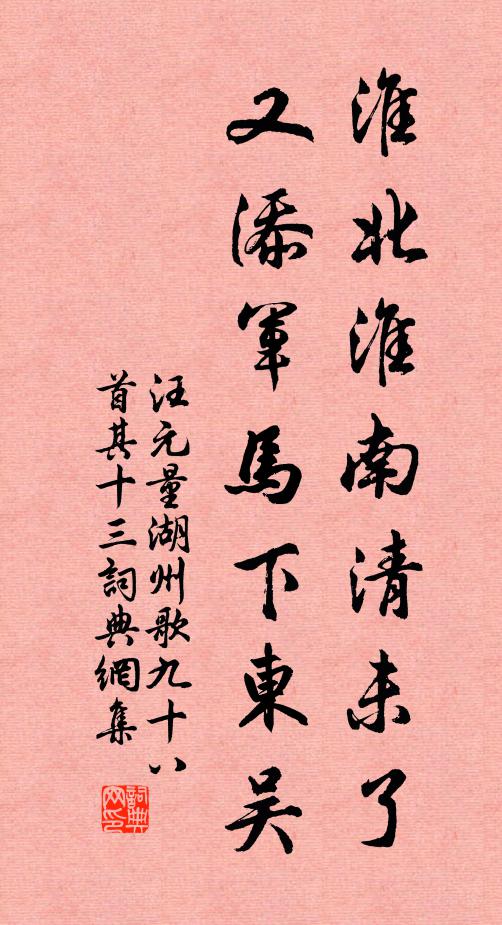 淮北淮南清未了
又添軍馬下東吴
汪元量湖州歌九十八
首其十三詞典網集
詞典
网印